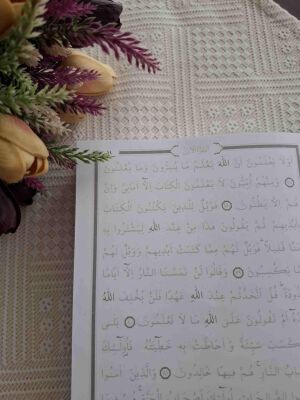 أَوَلَا يَعْلَمُونَ أَنَّ اللَّهَ يَعْلَمُ مَا يُسِرُّونَ وَمَا يُعْلِنُونَ
۝ وَمِنْهُمْ أُمِّيُّونَ لَا يَعْلَمُونَ الْكِتَابَ إِلَّا أَمَانِيَّ وَإِنْ
هُمْ إِلَّا يَظُنُّونَ ۝ فَوَيْلٌ لِلَّذِينَ يَكْتُبُونَ الْكِتَابَ
بِأَيْدِيهِمْ ثُمَّ يَقُولُونَ هَذَا مِنْ عِنْدِ اللَّهِ لِيَشْتَرُوا بِهِ
ثَمَنًا قَلِيلًا فَوَيْلٌ لَهُمْ مِمَّا كَتَبَتْ أَيْدِيهِمْ وَوَيْلٌ لَهُمْ
مِمَّا يَكْسِبُونَ ۝ وَقَالُوا لَنْ تَمَسَّنَا النَّارُ إِلَّا أَيَّامًا
مَعْدُودَةً قُلْ أَتَّخَذْتُمْ عِنْدَ اللَّهِ عَهْدًا فَلَنْ يُخْلِفَ اللَّهُ
عَهْدَهُ أَمْ تَقُولُونَ عَلَى اللَّهِ مَا لَا تَعْلَمُونَ ۝ بَلَى
كَسَبَ سَيِّئَةً وَأَحَاطَتْ بِهِ خَطِيئَتُهُ فَأُولَئِكَ
النَّارِ هُمْ فِيهَا خَالِدُونَ ۝ وَالَّذِينَ آمَنُوا